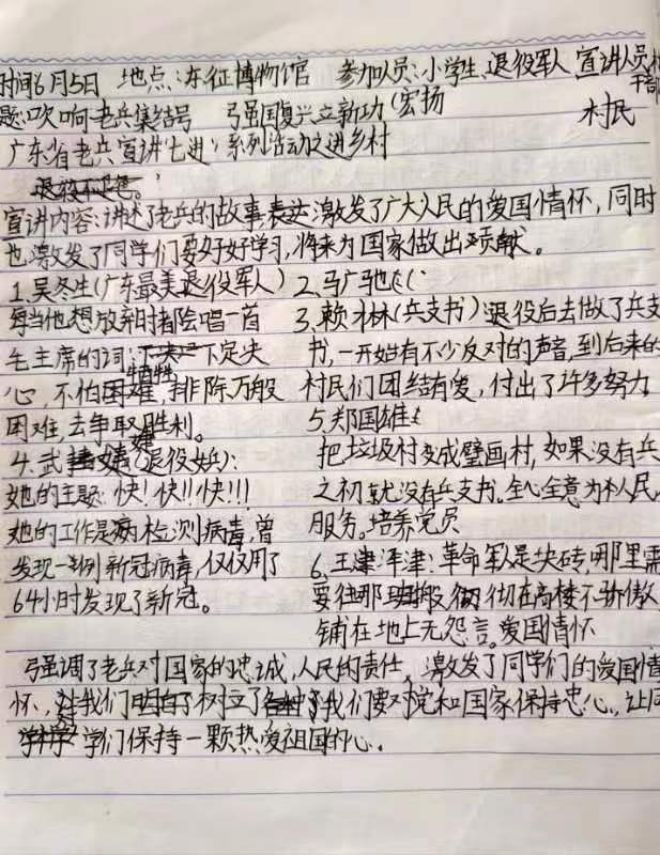 时间6月5日 地点:东征博物馆 参加人员:小学生、退役军人 宣讲人员
干部
题:吹响老兵集结号 强国复兴立新功(宏扬 村民
广东省老兵宣讲“七进”系列活动之进乡村
宣讲内容:讲述了老兵的故事,激发了广大人民的爱国情怀,同时
也激发了同学们要好好学习,将来为国家做出贡献。
1.吴冬生(广东最美退役军人) 2.马广驰
每当他想放弃时都会唱一首 3.赖水林(兵支书)退役后去做了兵支
毛主席的词:下定决 书,一开始有不少反对的声音,到后来的
心,不怕牺牲,排除万般 村民们团结有爱,付出了许多努力
困难,去争取胜利。 5.郑国雄
4.武婧(退役女兵): 把垃圾村变成壁画村,如果没有兵
她的主题:快!快!!快!!! 之初就没有兵支书。全心全意为村人民
她的工作是病检测病毒,曾 服务。培养党员
发现一例新冠病毒,仅仅用了 6.王津津:革命军人是块砖,哪里需
64小时发现了新冠。 要往哪搬 砌在高楼不骄傲
铺在地上无怨言。爱国情怀
强调了老兵对国家的忠诚,人民的责任,激发了同学们的爱国情
怀,让我们明白了树立了我们要对党和国家保持忠心,让同
学们保持一颗热爱祖国的心。